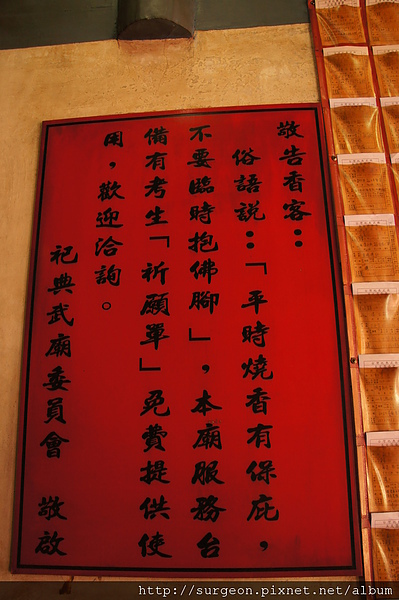 敬告香客：
俗語說：「平時燒香有保庇，
不要臨時抱佛腳」，本廟服務台
備有考生「祈願單」免費提供使
用，歡迎洽詢。
祀典武廟委員會　敬啟
http://surgeon.pixnet.net/album